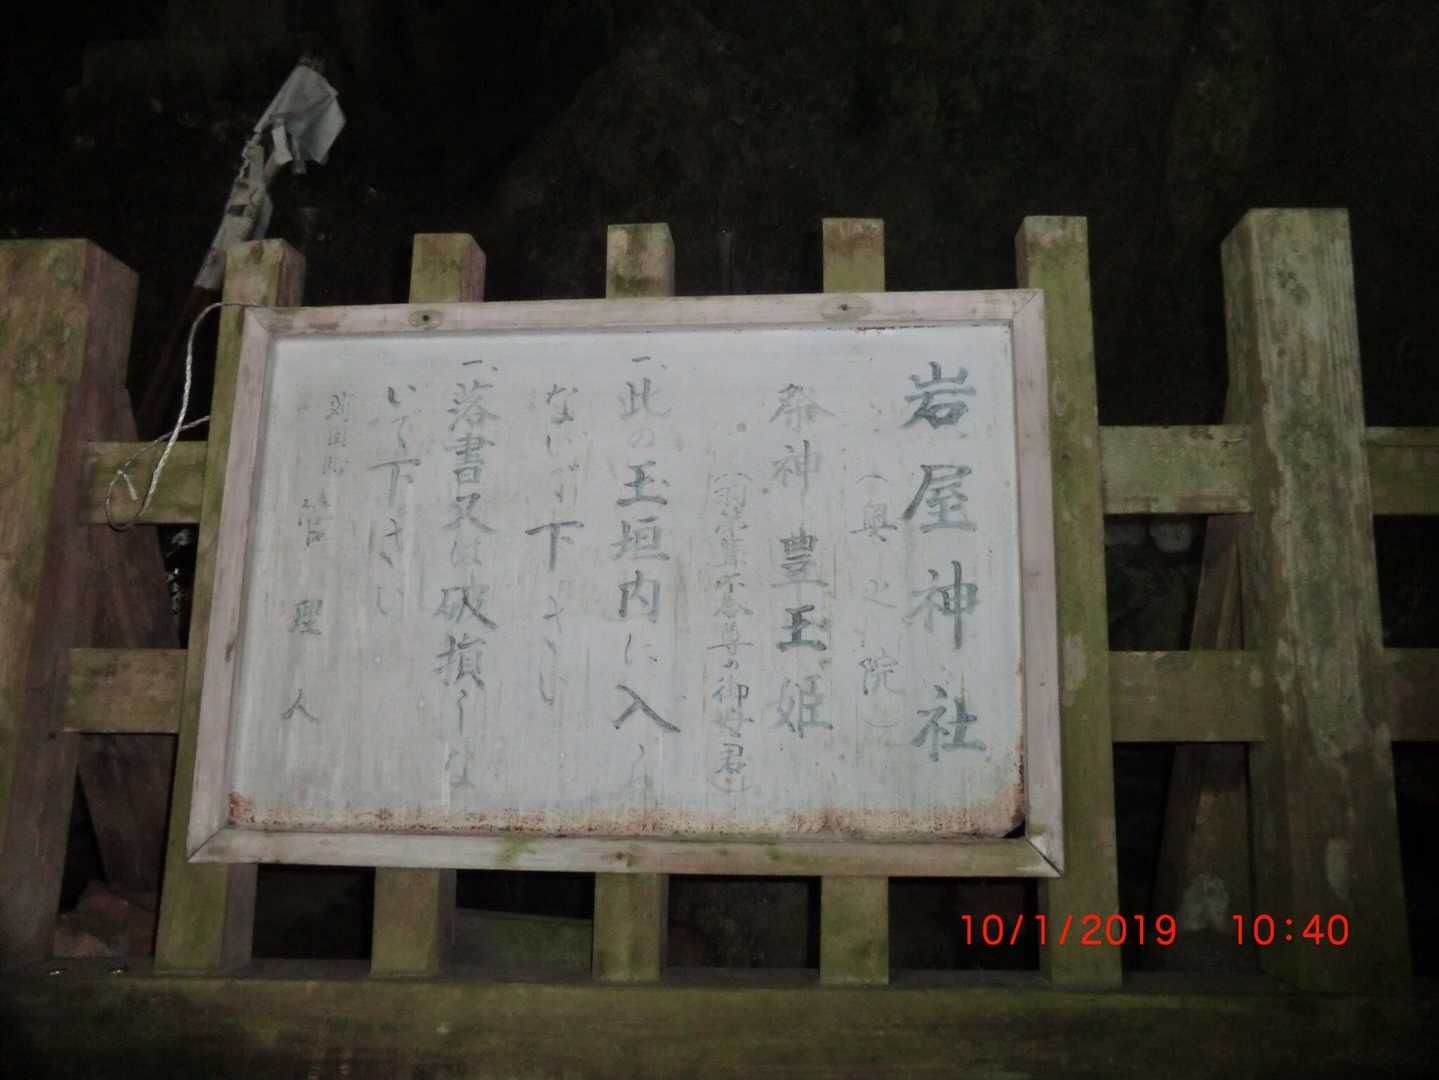 岩屋神社
（奥之院）
祭神 豊玉姫
不合尊の御母君）
一、此の玉垣内に入ら
ないで下さい
一、落書又は破損しな
いで下さい
苅田町 管理人
10/1/2019 10:40